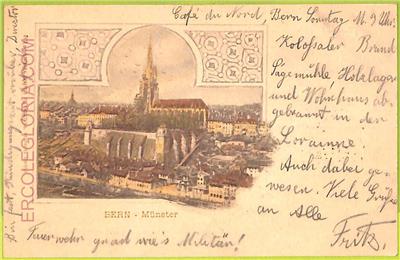 Café du Nord, Bern Sonntag M. 9 Uhr.
Kolossaler Brand
Sägemühle Holzlager
und Wohnhaus ab-
gebrannt in der
Lorainne
Auch dabei ge-
wesen. Viele Grüße
an Alle
Fritz.
BERN - Münster
Feuerwehr grad wie's Militär!
ERCOLEGLORIA.COM